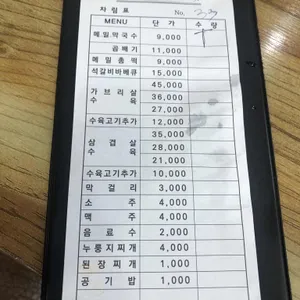 차림표 No. 23
MENU 단가 수량
메밀막국수 9,000
곱빼기 11,000
메밀총떡 9,000
석갈비바베큐 15,000
가브리살수육 45,000
36,000
27,000
수육고기추가 12,000
삼겹살수육 35,000
28,000
21,000
수육고기추가 10,000
막걸리 3,000
소주 4,000
맥주 4,000
음료수 2,000
누룽지찌개 4,000
된장찌개 1,000
공기밥 1,000